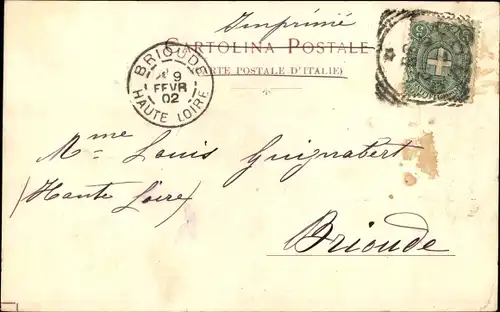 Imprimé
CARTOLINA POSTALE
(CARTE POSTALE D'ITALIE)
BRIOUDE
9
FEVR
02
HAUTE LOIRE
Mme Louis Guignabert
(Haute Loire)
Brioude